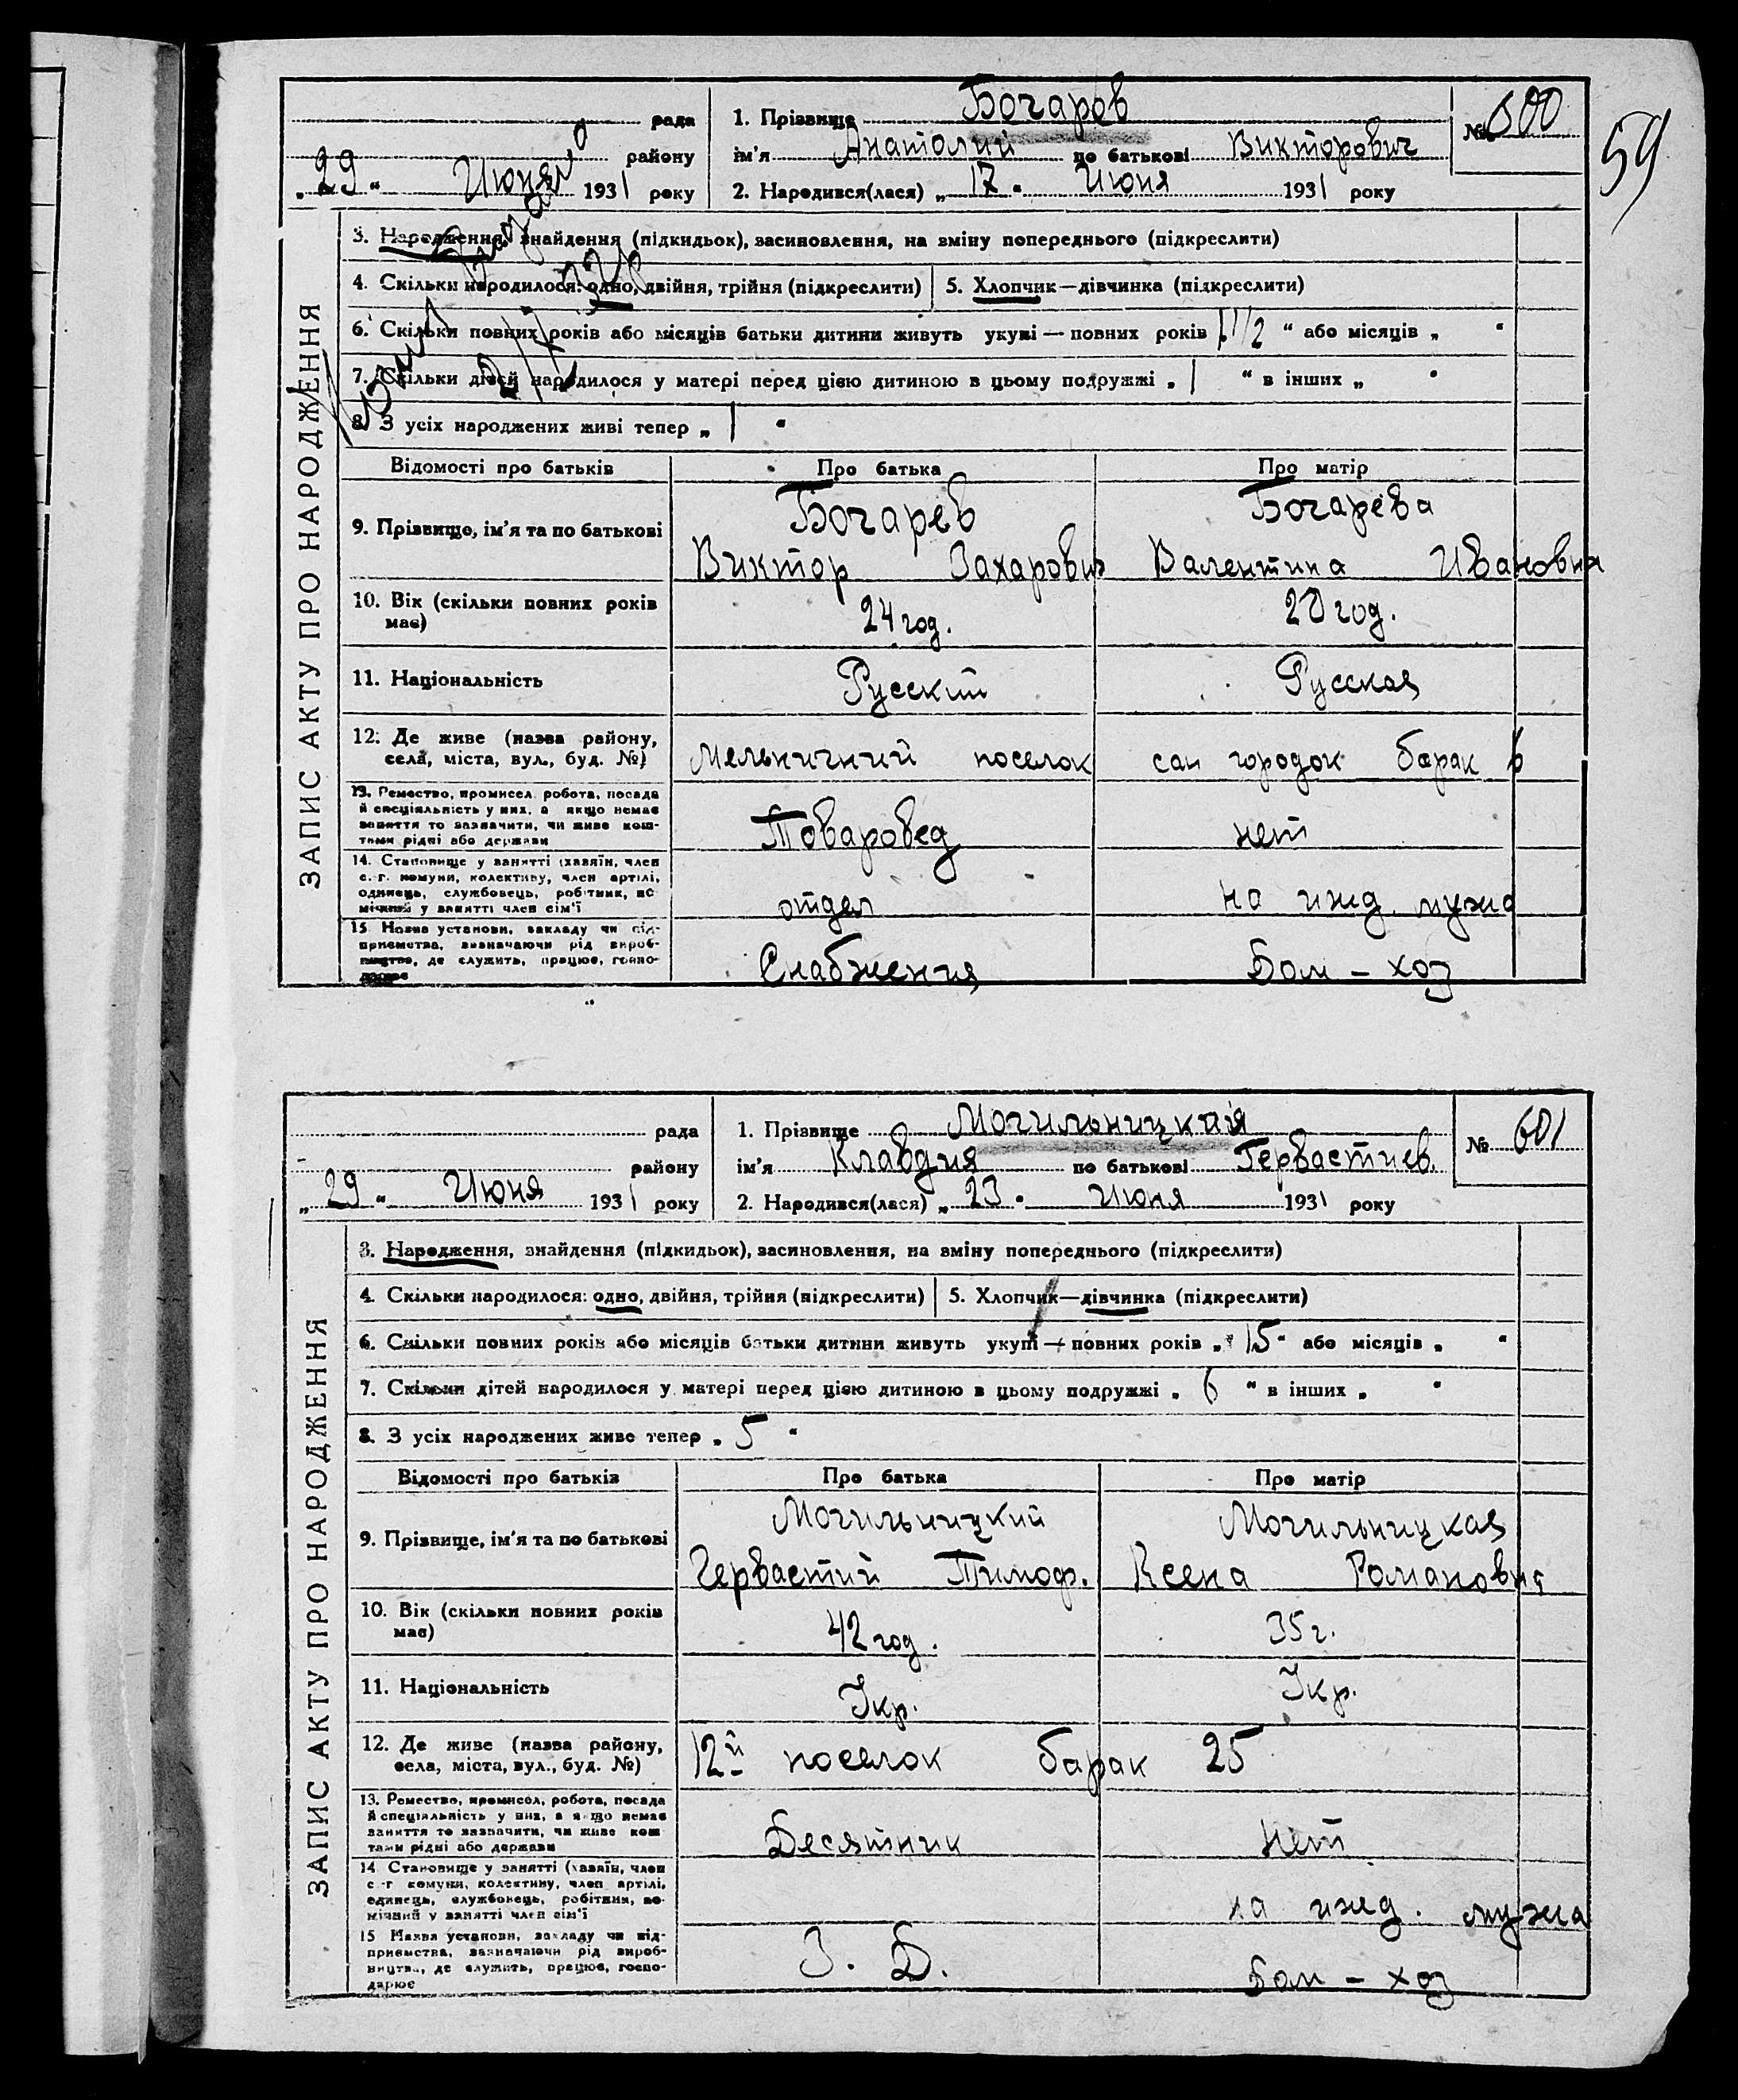 59
рада
району
„29" Июня 1931 року
1. Прізвище Бочаров
ім'я Анатолий по батькові Викторович
2. Народився(лася) „17" Июня 1931 року
№ 600
ЗАПИС АКТУ ПРО НАРОДЖЕННЯ
3. Народження, знайдення (підкидьок), засиновлення, на зміну попереднього (підкреслити)
4. Скільки народилося: одно, двійня, трійня (підкреслити) 5. Хлопчик—дівчинка (підкреслити)
6. Скільки повних років або місяців батьки дитини живуть укупі — повних років 1 1/2 " або місяців „ "
7. Скільки дітей народилося у матері перед цією дитиною в цьому подружжі „ 1 " в інших „ "
8. З усіх народжених живі тепер „ 1 "
Відомості про батьків Про батька Про матір
9. Прізвище, ім'я та по батькові
Бочарев
Виктор Захарович
Бочарева
Валентина Ивановна
10. Вік (скільки повних років
має)
24 год.
20 год.
11. Національність Русский Русская
12. Де живе (назва району,
села, міста, вул., буд. №)
Мельничний поселок сан городок барак 6
13. Ремество, промисел, робота, посада
й спеціяльність у них, а якщо немає
заняття то зазначити, чи живе кош-
тами рідні або держави
Товаровед
нет
14. Становище у занятті (хазяїн, член
с.-г. комуни, колективу, член артілі,
одинець, службовець, робітник, по-
мічний у занятті член сім'ї
отдел
на ижд. мужа
15. Назва установи, закладу чи під-
приємства, зазначаючи рід вироб-
ництва, де служить, працює, госпо-
дарює
Снабжения
Дом – хоз
рада
району
„29" Июня 1931 року
1. Прізвище Могильницкая
ім'я Клавдия по батькові Гервастиев.
2. Народився(лася) „23" Июня 1931 року
№ 601
ЗАПИС АКТУ ПРО НАРОДЖЕННЯ
3. Народження, знайдення (підкидьок), засиновлення, на зміну попереднього (підкреслити)
4. Скільки народилося: одно, двійня, трійня (підкреслити) 5. Хлопчик—дівчинка (підкреслити)
6. Скільки повних років або місяців батьки дитини живуть укупі — повних років „ 15 " або місяців „ "
7. Скільки дітей народилося у матері перед цією дитиною в цьому подружжі „ 6 " в інших „ "
8. З усіх народжених живе тепер „ 5 "
Відомості про батьків Про батька Про матір
9. Прізвище, ім'я та по батькові
Могильницкий
Гервастий Тимоф.
Могильницкая
Ксена Романовна
10. Вік (скільки повних років
має)
42 год.
35 г.
11. Національність Укр. Укр.
12. Де живе (назва району,
села, міста, вул., буд. №)
12й поселок барак 25
13. Ремество, промисел, робота, посада
й спеціяльність у них, а якщо немає
заняття то зазначити, чи живе кош-
тами рідні або держави
Десятник
нет
14. Становище у занятті (хазяїн, член
с.-г. комуни, колективу, член артілі,
одинець, службовець, робітник, по-
мічний у занятті член сім'ї
на ижд. мужа
15. Назва установи, закладу чи під-
приємства, зазначаючи рід вироб-
ництва, де служить, працює, госпо-
дарює
З. Д.
Дом – хоз